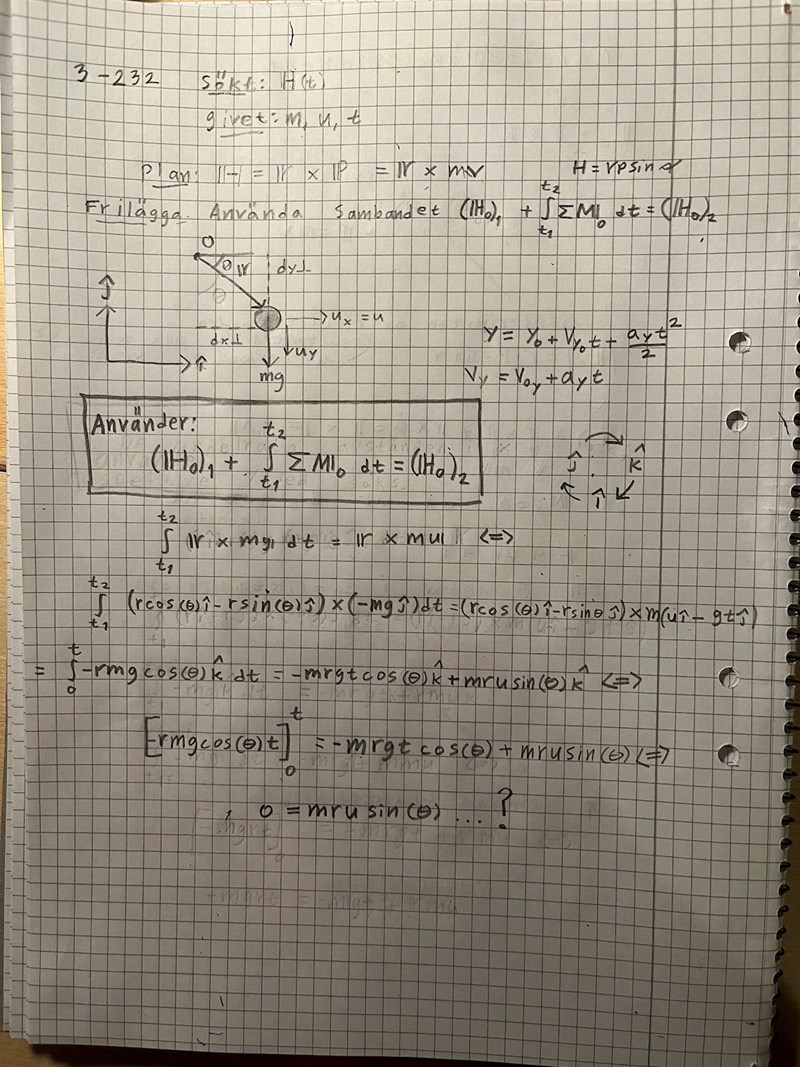 3-232 Sökt: H(t)
givet: m, u, t
Plan: H = r × P = r × mv H = rpsin α
Frilägga. Använda sambandet (H₀)₁ + ∫_{t₁}^{t₂} ΣM₀ dt = (H₀)₂
O
θ r dy⊥
ĵ
→ uₓ = u
dx⊥
î ↓uy
mg
y = y₀ + Vy₀t + ayt²/2
Vy = V₀y + ayt
Använder:
(H₀)₁ + ∫_{t₁}^{t₂} ΣM₀ dt = (H₀)₂
ĵ k̂
î
∫_{t₁}^{t₂} r × mg dt = r × mu <=>
∫_{t₁}^{t₂} (rcos(θ)î - rsin(θ)ĵ) × (-mgĵ)dt = (rcos(θ)î - rsinθĵ) × m(uî - gtĵ)
= ∫_0^t -rmg cos(θ) k̂ dt = -mrgt cos(θ) k̂ + mru sin(θ) k̂ <=>
[-rmgcos(θ)t]_0^t = -mrgt cos(θ) + mrusin(θ) <=>
0 = mru sin(θ) ... ?